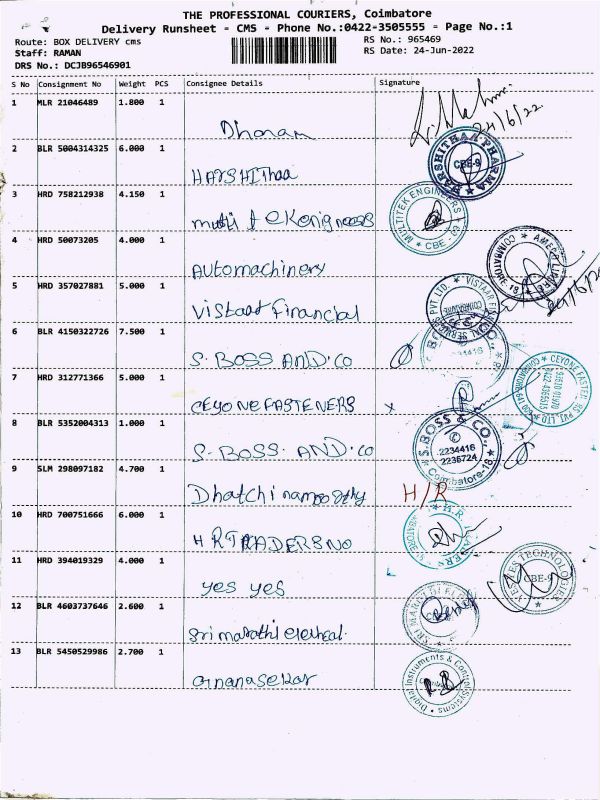 THE PROFESSIONAL COURIERS, Coimbatore
Delivery Runsheet - CMS - Phone No.:0422-3505555 - Page No.:1
Route: BOX DELIVERY cms
RS No.: 965469
Staff: RAMAN
RS Date: 24-Jun-2022
DRS No.: DCJB96546901
S No Consignment No Weight PCS Consignee Details Signature
1 MLR 21046489 1.800 1
Dhoram
24/6/22
2 BLR 5004314325 6.000 1
HARSHITHAA PHARMA
CBE-9
HARSHITHAA
3 HRD 758212938 4.150 1
MULTITEK ENGINEERS
CBE
4 HRD 50073205 4.000 1
COIMBATORE-18
Automachinery
5 HRD 357027881 5.000 1
COIMBATORE
Vistaar Financial
6 BLR 4150322726 7.500 1
S. BOSS AND.CO
7 HRD 312771366 5.000 1
CEYONE FASTENERS
x
8 BLR 5352004313 1.000 1
S. BOSS & CO.,
2234416
2236724
Coimbatore-18
S. BOSS. AND.CO
9 SLM 298097182 4.700 1
H/R
10 HRD 700751666 6.000 1
HR TRADERS NO
11 HRD 394019329 4.000 1
YESYES TECHNOLOGIES
CBE-9
yes yes
12 BLR 4603737646 2.600 1
13 BLR 5450529986 2.700 1
Digital Instruments & Control Systems
Gnanasekar